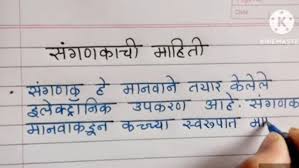 संगणकाची माहिती
• संगणक हे मानवाने तयार केलेले
इलेक्ट्रॉनिक उपकरण आहे. संगणक
मानवाकडून कच्च्या स्वरूपात मा
KINEMASTER